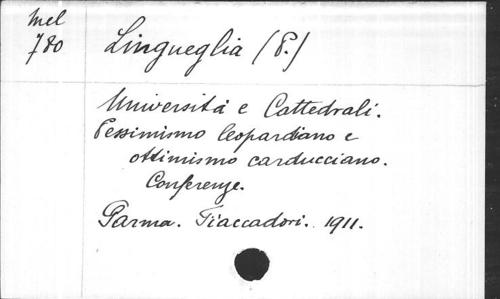 Mel
780
Lingueglia (P.)
Università e Cattedrali.
Pessimismo leopardiano e
ottimismo carducciano.
Conferenze.
Parma. Fiaccadori. 1911.